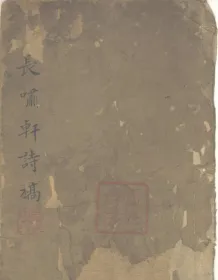 長嘯軒詩稿